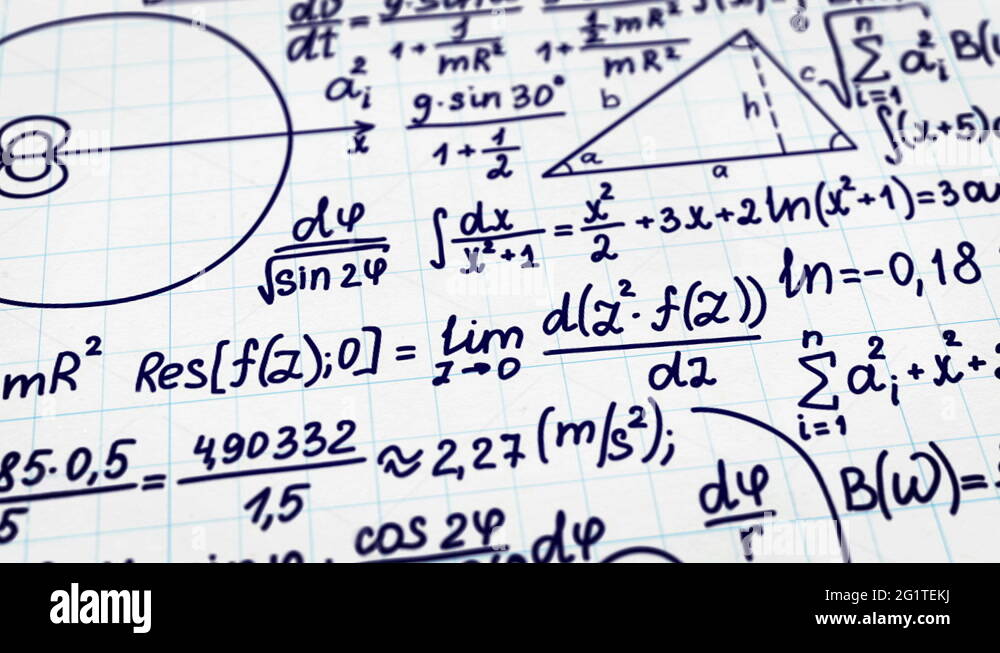 dD/dt = g·sin / 1 + 1/mR² 1 + ½mR²/mR²
a_i² x
g·sin 30° / 1 + 1/2
b c h a a
√∑_{i=1}^{n} a_i² B(
∫(x+5)
dφ/√sin 2φ
∫ dx/x²+1 = x²/2 + 3x + 2 ln(x²+1) = 3a
ln = -0,18
mR² Res[f(z);0] = lim_{z→0} d(z²·f(z))/dz
∑_{i=1}^{n} a_i² + x² +
85·0,5/5 = 4,90332/1,5 ≈ 2,27 (m/s²);
dφ
B(ω) =
cos 2φ dφ
alamy
alamy
Image ID: 2G1TEKJ
www.alamy.com